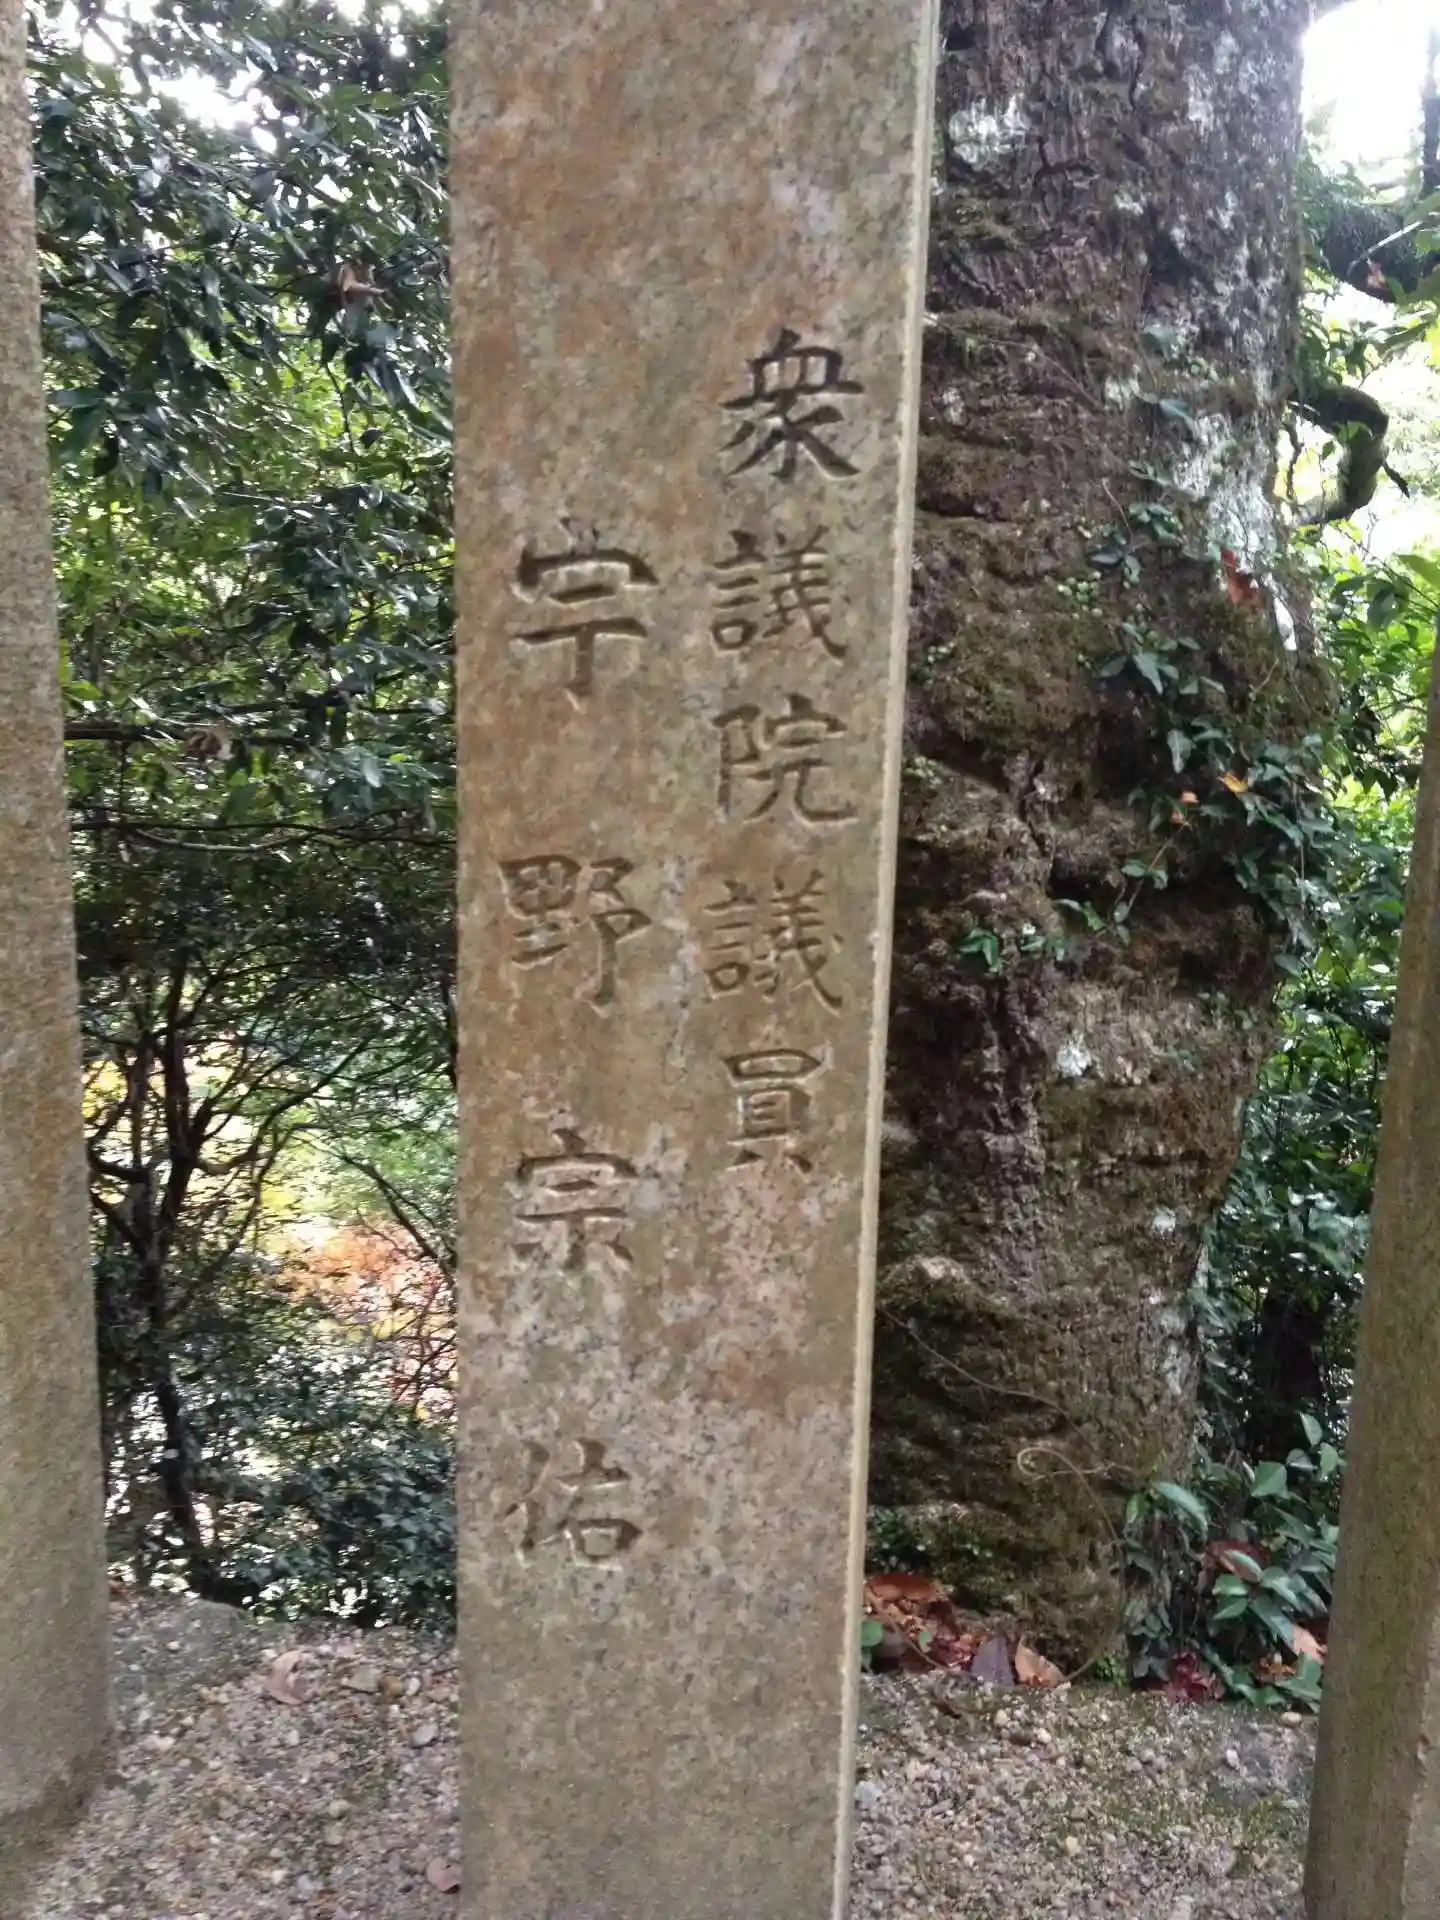 衆議院議員
宇野宗佑